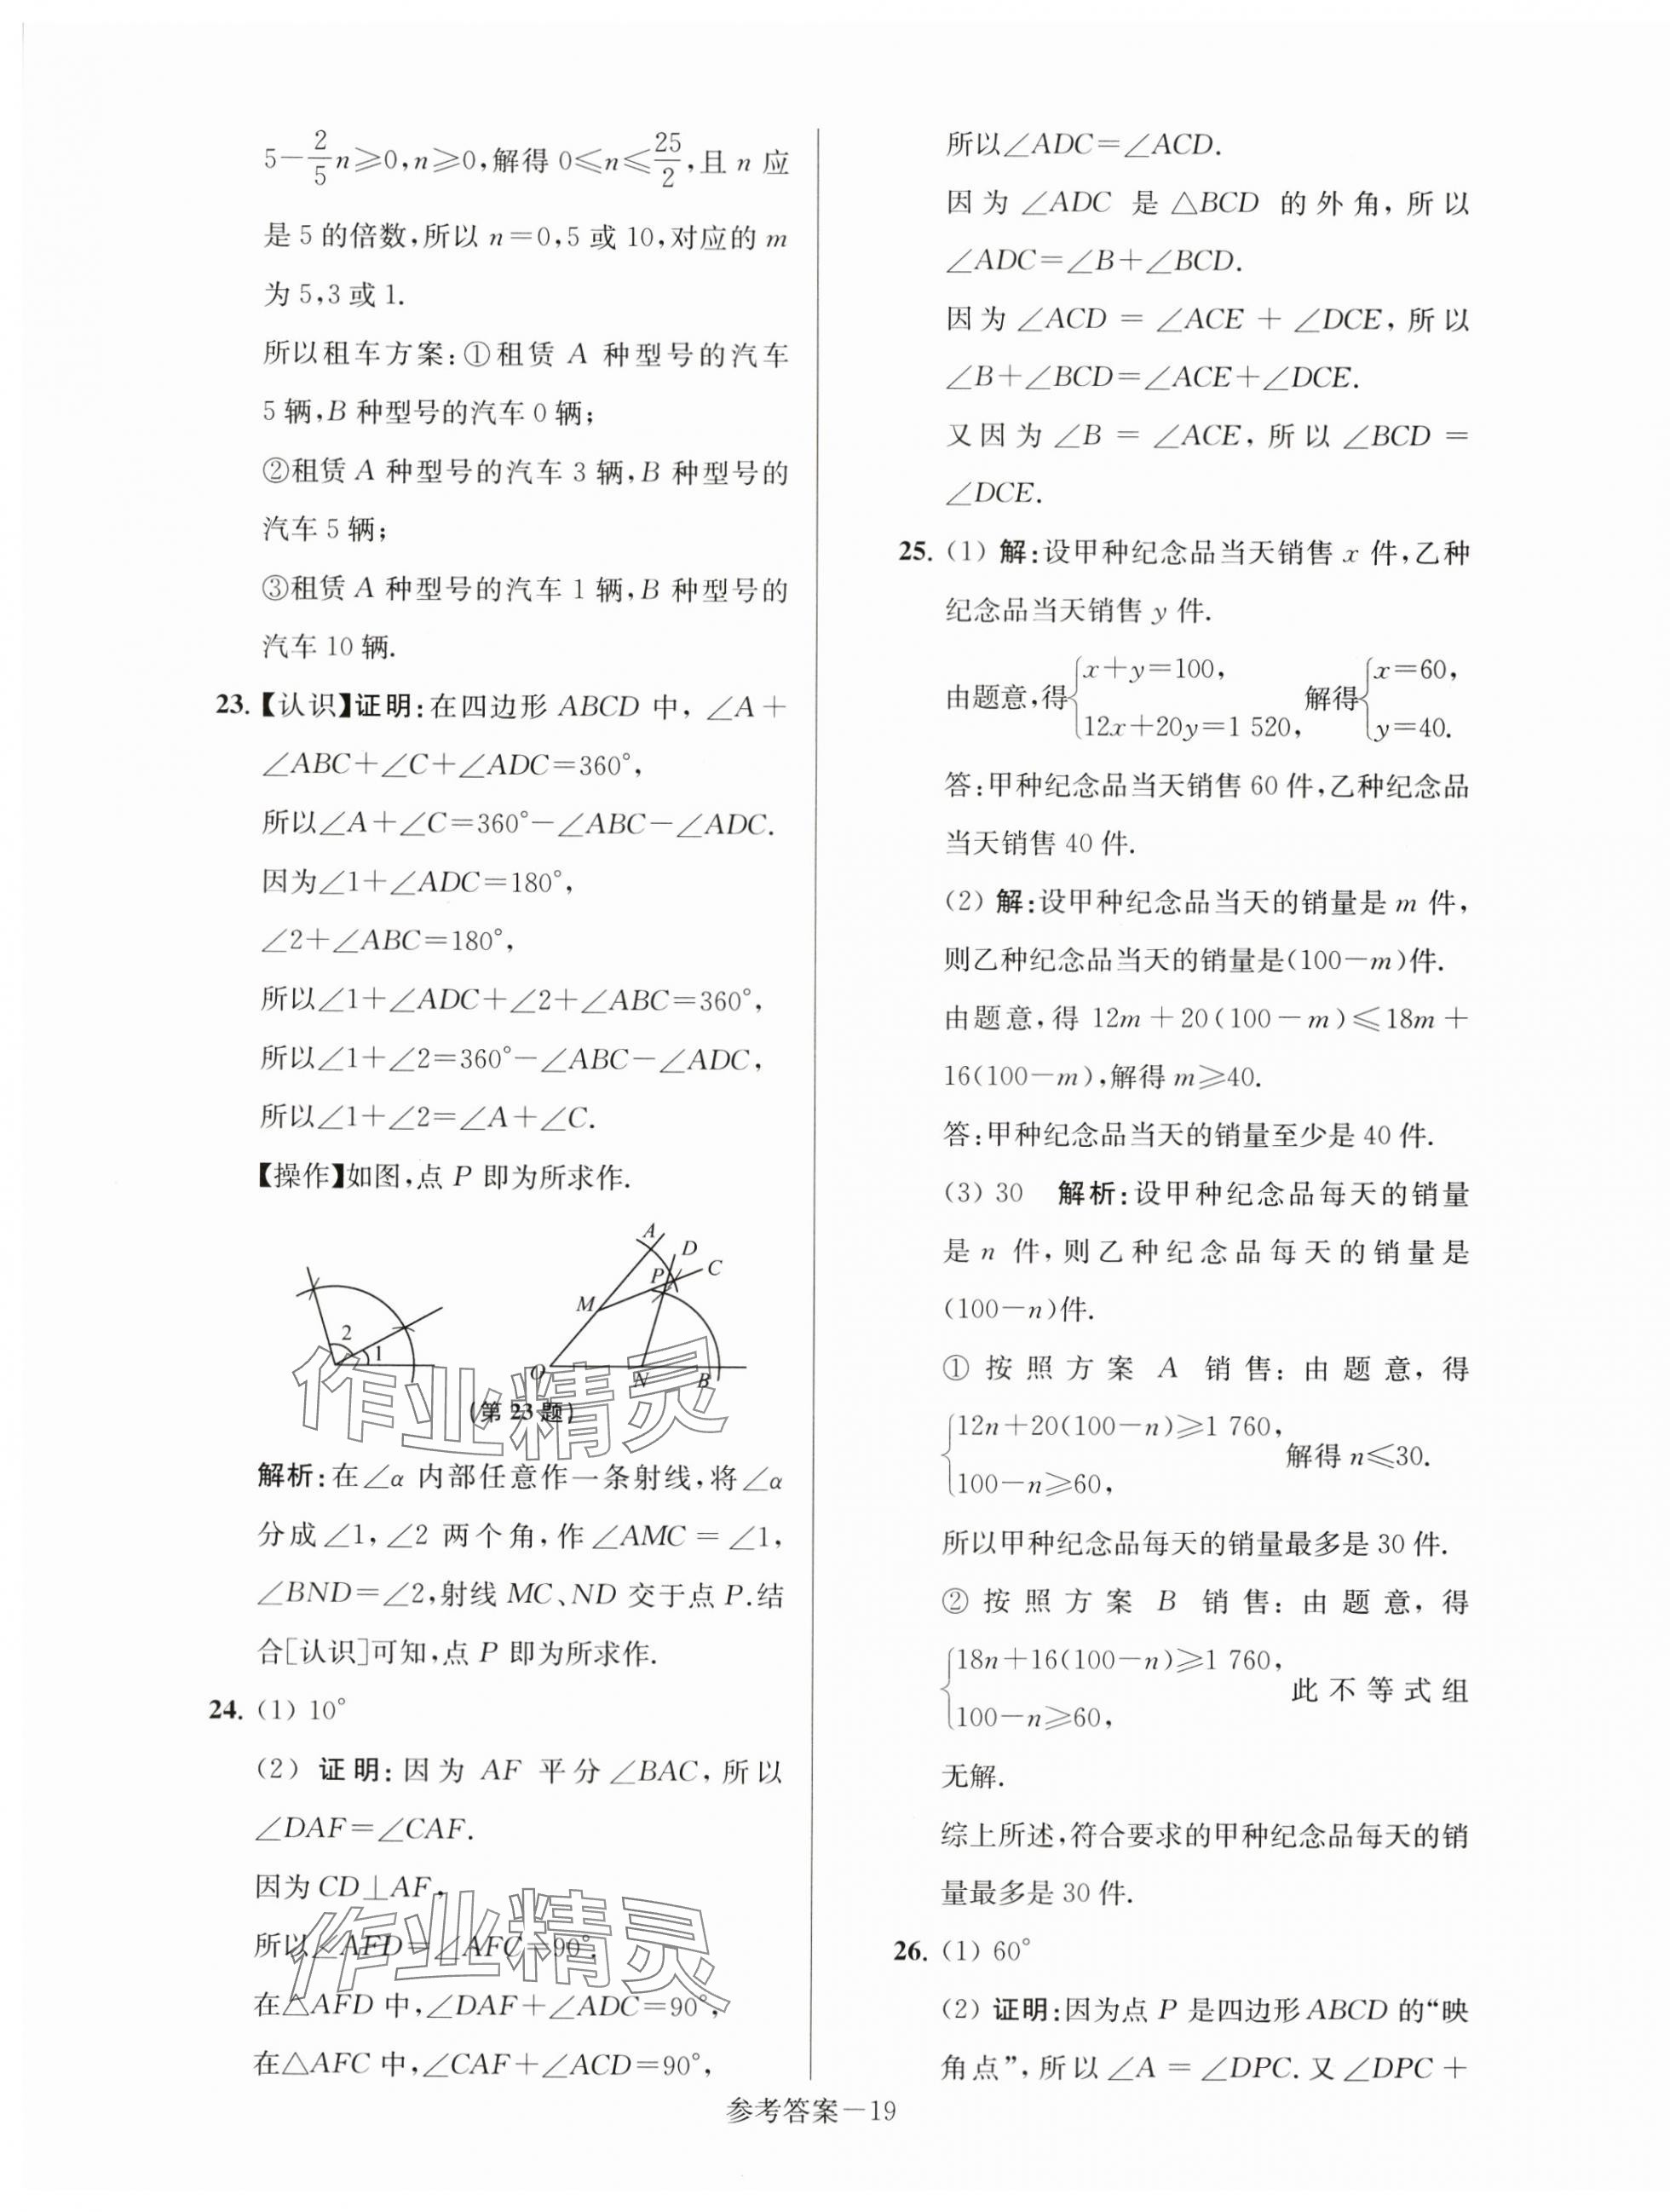 5－2/5n≥0，n≥0，解得 0≤n≤25/2，且 n 应
是 5 的倍数，所以 n＝0，5 或 10，对应的 m
为 5，3 或 1.
所以租车方案：①租赁 A 种型号的汽车
5 辆，B 种型号的汽车 0 辆；
②租赁 A 种型号的汽车 3 辆，B 种型号的
汽车 5 辆；
③租赁 A 种型号的汽车 1 辆，B 种型号的
汽车 10 辆.
23.【认识】证明：在四边形 ABCD 中，∠A＋
∠ABC＋∠C＋∠ADC＝360°，
所以∠A＋∠C＝360°－∠ABC－∠ADC.
因为∠1＋∠ADC＝180°，
∠2＋∠ABC＝180°，
所以∠1＋∠ADC＋∠2＋∠ABC＝360°，
所以∠1＋∠2＝360°－∠ABC－∠ADC，
所以∠1＋∠2＝∠A＋∠C.
【操作】如图，点 P 即为所求作.
2
1
A
D
P
C
M
O
N
B
（第 23 题）
作业精灵
解析：在∠α 内部任意作一条射线，将∠α
分成∠1，∠2 两个角，作∠AMC＝∠1，
∠BND＝∠2，射线 MC、ND 交于点 P.结
合[认识]可知，点 P 即为所求作.
24. (1) 10°
(2) 证明：因为 AF 平分∠BAC，所以
∠DAF＝∠CAF.
因为 CD⊥AF，
所以∠AFD＝∠AFC＝90°.
作业精灵
在△AFD 中，∠DAF＋∠ADC＝90°，
在△AFC 中，∠CAF＋∠ACD＝90°，
所以∠ADC＝∠ACD.
因为∠ADC 是△BCD 的外角，所以
∠ADC＝∠B＋∠BCD.
因为∠ACD＝∠ACE＋∠DCE，所以
∠B＋∠BCD＝∠ACE＋∠DCE.
又因为∠B＝∠ACE，所以∠BCD＝
∠DCE.
25. (1) 解：设甲种纪念品当天销售 x 件，乙种
纪念品当天销售 y 件.
由题意，得{x＋y＝100， 12x＋20y＝1 520， 解得{x＝60， y＝40.
答：甲种纪念品当天销售 60 件，乙种纪念品
当天销售 40 件.
(2) 解：设甲种纪念品当天的销量是 m 件，
则乙种纪念品当天的销量是(100－m)件.
由题意，得 12m＋20(100－m)≤18m＋
16(100－m)，解得 m≥40.
答：甲种纪念品当天的销量至少是 40 件.
(3) 30 解析：设甲种纪念品每天的销量
是 n 件，则乙种纪念品每天的销量是
(100－n)件.
① 按照方案 A 销售：由题意，得
{12n＋20(100－n)≥1 760， 100－n≥60， 解得 n≤30.
所以甲种纪念品每天的销量最多是 30 件.
② 按照方案 B 销售：由题意，得
{18n＋16(100－n)≥1 760， 100－n≥60， 此不等式组
无解.
综上所述，符合要求的甲种纪念品每天的销
量最多是 30 件.
26. (1) 60°
(2) 证明：因为点 P 是四边形 ABCD 的“映
角点”，所以∠A＝∠DPC.又∠DPC＋
参考答案－19